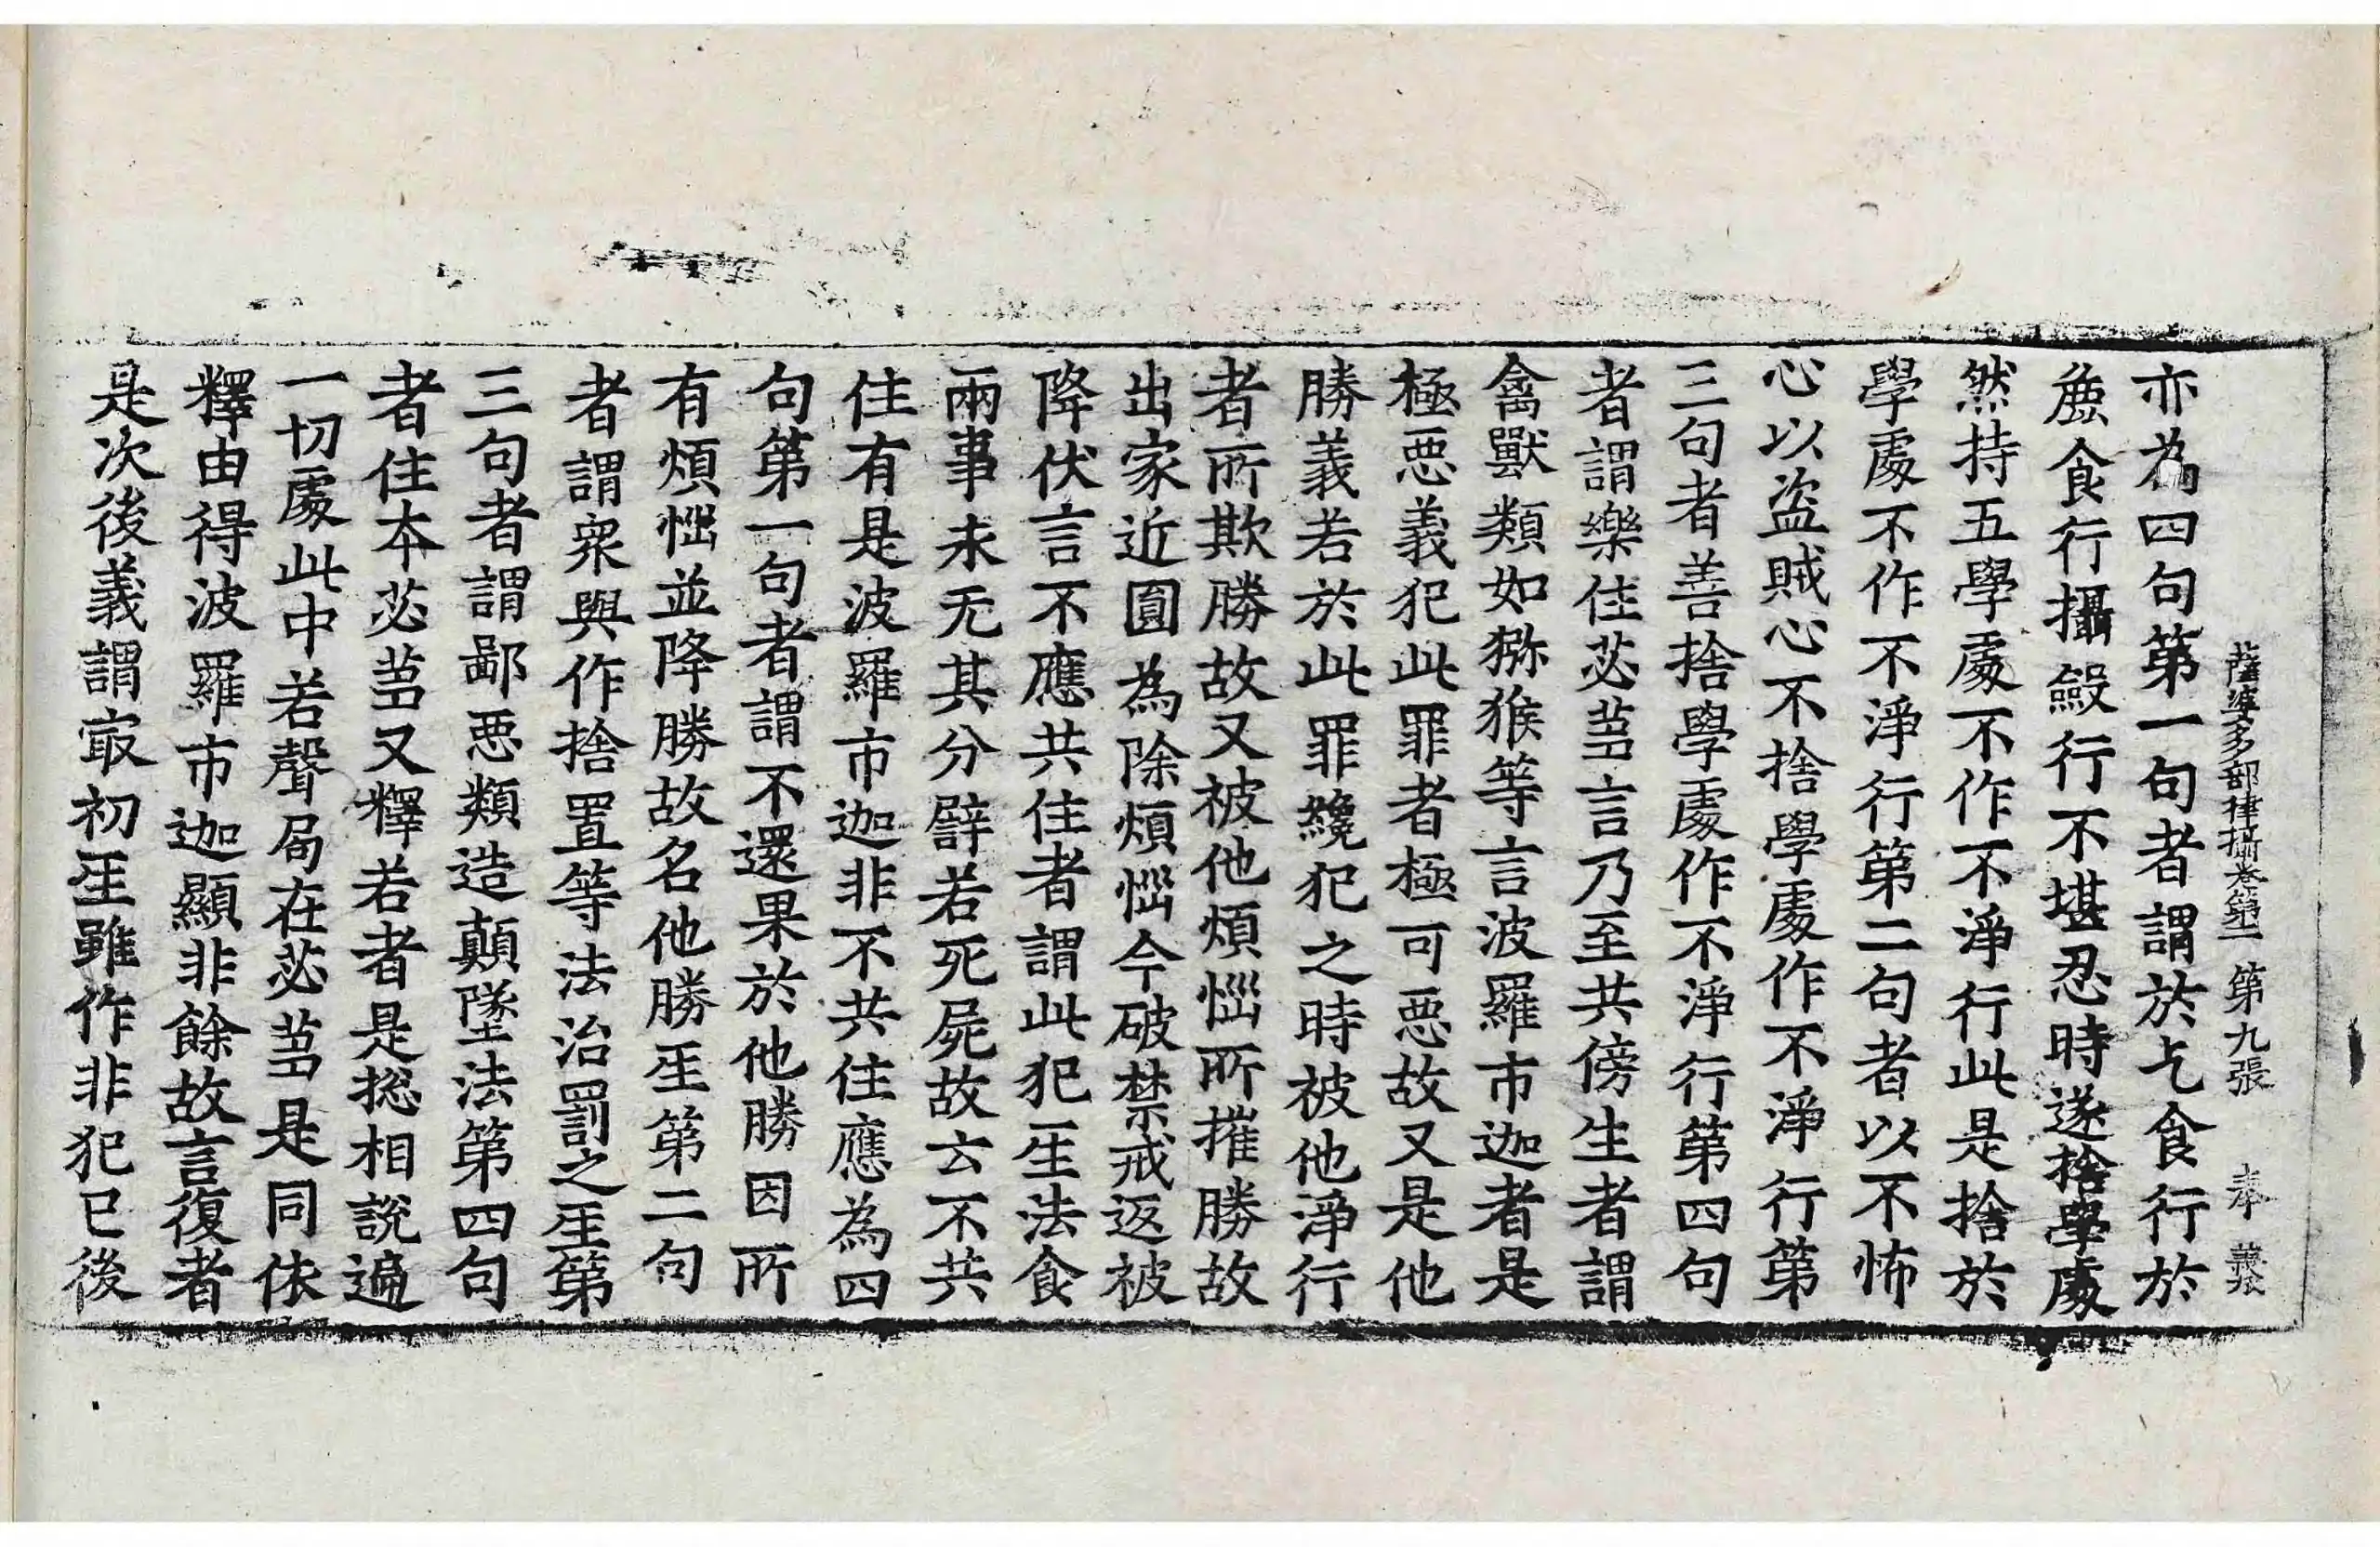 薩婆多部律攝卷第二 第九張 奉 義
亦為四句第一句者謂於乞食行於
麁食行攝斂行不堪忍時遂捨學處
然持五學處不作不淨行此是捨於
學處不作不淨行第二句者以不怖
心以盜賊心不捨學處作不淨行第
三句者善捨學處作不淨行第四句
者謂樂住苾蒭言乃至共傍生者謂
禽獸類如猕猴等言波羅市迦者是
極惡義犯此罪者極可惡故又是他
勝義若於此罪纔犯之時被他淨行
者所欺勝故又被他煩惱所摧勝故
出家近圓為除煩惱今破禁戒返被
降伏言不應共住者謂此犯人法食
兩事永无其分譬若死屍故云不共
住有是波羅市迦非不共住應為四
句第一句者謂不還果於他勝因所
有煩惱並降勝故名他勝𤯔第二句
者謂衆與作捨置等法治罰之𤯔第
三句者謂鄙惡類造顛墜法第四句
者住本苾蒭又釋若者是揔相說遍
一切處此中若聲局在苾蒭是同依
釋由得波羅市迦顯非餘故言復者
是次後義謂㝡初𤯔雖作非犯已後